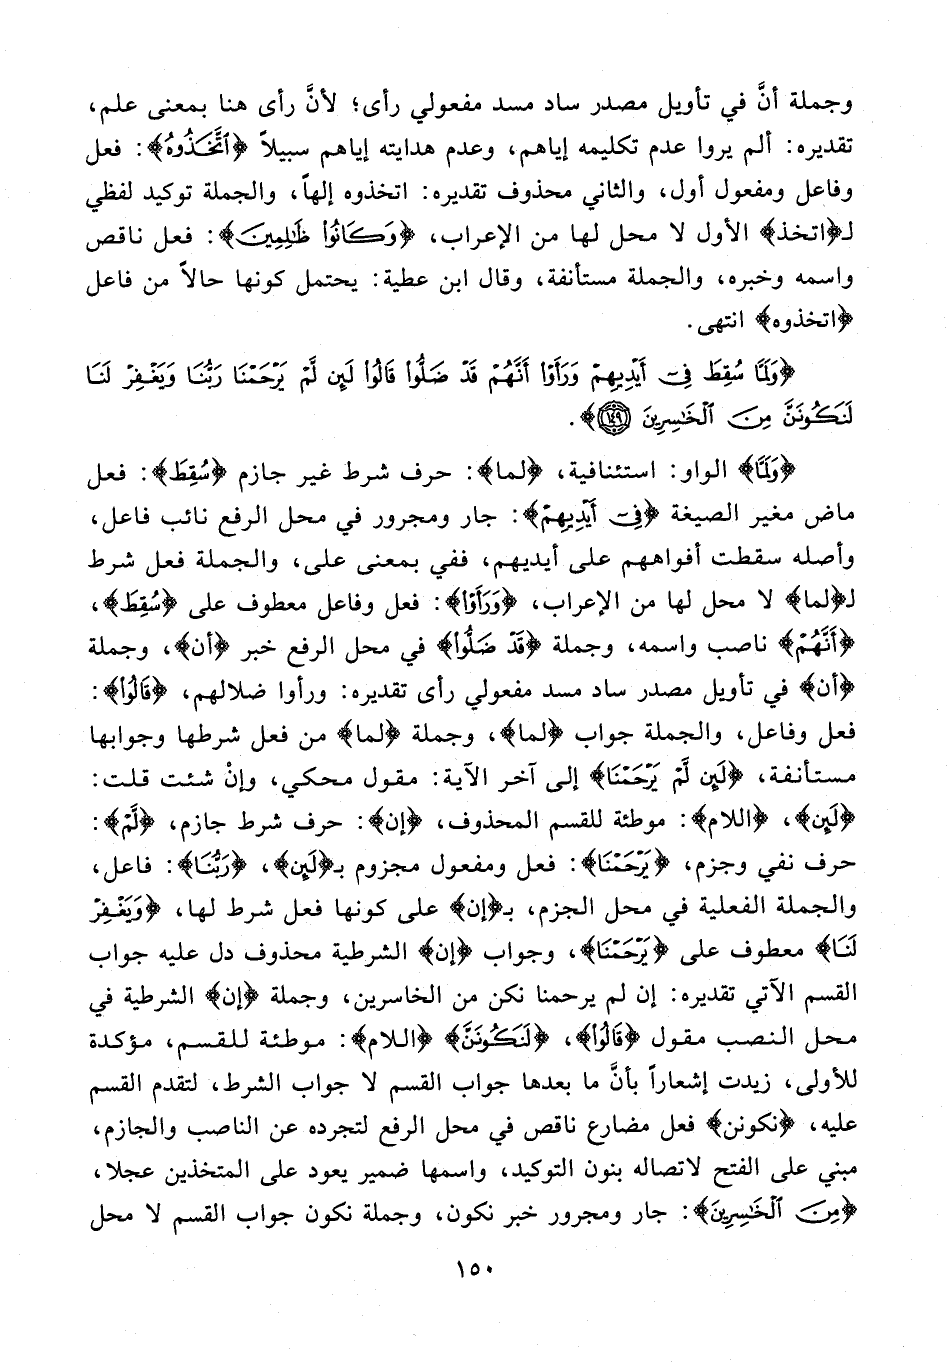 وجملة أنَّ في تأويل مصدر ساد مسد مفعولي رأى؛ لأنَّ رأى هنا بمعنى علم،
تقديره: ألم يروا عدم تكليمه إياهم، وعدم هدايته إياهم سبيلاً ﴿ٱتَّخَذُوهُ﴾: فعل
وفاعل ومفعول أول، والثاني محذوف تقديره: اتخذوه إلهاً، والجملة توكيد لفظي
لـ﴿اتخذ﴾ الأول لا محل لها من الإعراب، ﴿وَكَانُوا۟ ظَٰلِمِينَ﴾: فعل ناقص
واسمه وخبره، والجملة مستأنفة، وقال ابن عطية: يحتمل كونها حالاً من فاعل
﴿اتخذوه﴾ انتهى.
﴿وَلَمَّا سُقِطَ فِىٓ أَيْدِيهِمْ وَرَأَوْا۟ أَنَّهُمْ قَدْ ضَلُّوا۟ قَالُوا۟ لَئِن لَّمْ يَرْحَمْنَا رَبُّنَا وَيَغْفِرْ لَنَا
لَنَكُونَنَّ مِنَ ٱلْخَٰسِرِينَ ١٤٩﴾.
﴿وَلَمَّا﴾ الواو: استئنافية، ﴿لما﴾: حرف شرط غير جازم ﴿سُقِطَ﴾: فعل
ماض مغير الصيغة ﴿فِىٓ أَيْدِيهِمْ﴾: جار ومجرور في محل الرفع نائب فاعل،
وأصله سقطت أفواههم على أيديهم، ففي بمعنى على، والجملة فعل شرط
لـ﴿لما﴾ لا محل لها من الإعراب، ﴿وَرَأَوْا۟﴾: فعل وفاعل معطوف على ﴿سُقِطَ﴾،
﴿أَنَّهُمْ﴾ ناصب واسمه، وجملة ﴿قَدْ ضَلُّوا۟﴾ في محل الرفع خبر ﴿أن﴾، وجملة
﴿أن﴾ في تأويل مصدر ساد مسد مفعولي رأى تقديره: ورأوا ضلالهم، ﴿قَالُوا۟﴾:
فعل وفاعل، والجملة جواب ﴿لما﴾، وجملة ﴿لما﴾ من فعل شرطها وجوابها
مستأنفة، ﴿لَئِن لَّمْ يَرْحَمْنَا﴾ إلى آخر الآية: مقول محكي، وإنْ شئت قلت:
﴿لَئِن﴾، ﴿اللام﴾: موطئة للقسم المحذوف، ﴿إن﴾: حرف شرط جازم، ﴿لَّمْ﴾:
حرف نفي وجزم، ﴿يَرْحَمْنَا﴾: فعل ومفعول مجزوم بـ﴿لَئِن﴾، ﴿رَبُّنَا﴾: فاعل،
والجملة الفعلية في محل الجزم، بـ﴿إن﴾ على كونها فعل شرط لها، ﴿وَيَغْفِرْ
لَنَا﴾ معطوف على ﴿يَرْحَمْنَا﴾، وجواب ﴿إن﴾ الشرطية محذوف دل عليه جواب
القسم الآتي تقديره: إن لم يرحمنا نكن من الخاسرين، وجملة ﴿إن﴾ الشرطية في
محل النصب مقول ﴿قَالُوا۟﴾، ﴿لَنَكُونَنَّ﴾ ﴿اللام﴾: موطئة للقسم، مؤكدة
للأولى، زيدت إشعاراً بأنَّ ما بعدها جواب القسم لا جواب الشرط، لتقدم القسم
عليه، ﴿نكونن﴾ فعل مضارع ناقص في محل الرفع لتجرده عن الناصب والجازم،
مبني على الفتح لاتصاله بنون التوكيد، واسمها ضمير يعود على المتخذين عجلا،
﴿مِنَ ٱلْخَٰسِرِينَ﴾: جار ومجرور خبر نكون، وجملة نكون جواب القسم لا محل
١٥٠